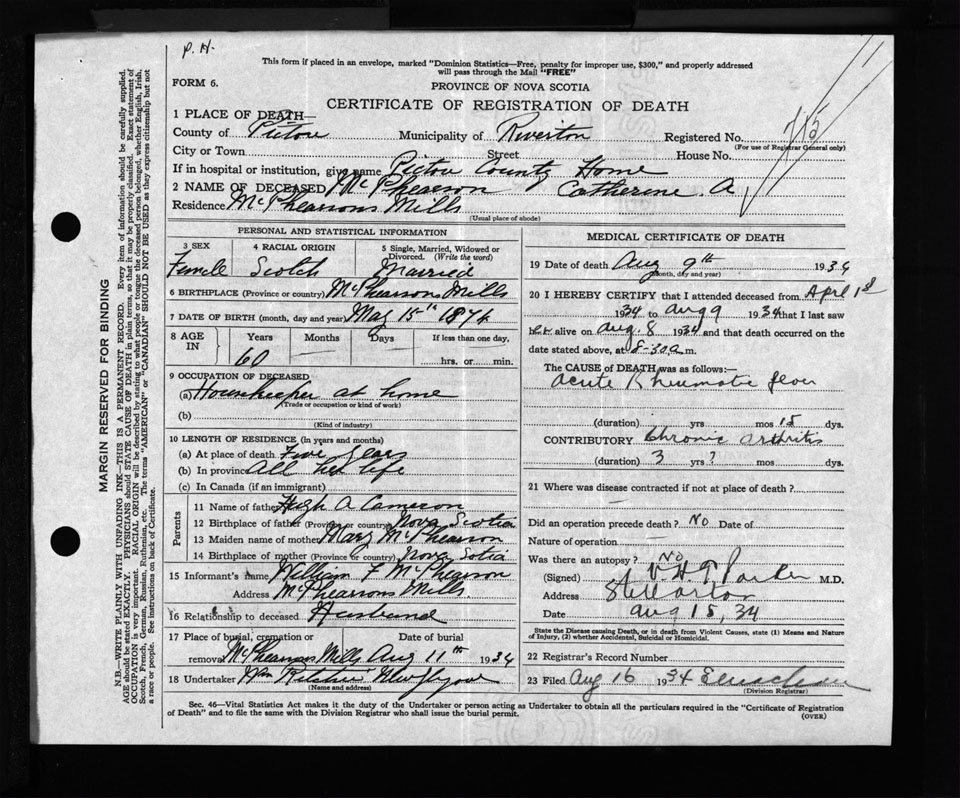 P. H.
This form if placed in an envelope, marked "Dominion Statistics—Free, penalty for improper use, $300," and properly addressed
will pass through the Mail "FREE"
FORM 6.
PROVINCE OF NOVA SCOTIA
CERTIFICATE OF REGISTRATION OF DEATH
1 PLACE OF DEATH—
County of Pictou Municipality of Riverton Registered No. 715
(For use of Registrar General only)
City or Town Street House No.
If in hospital or institution, give name Pictou County Home
2 NAME OF DECEASED McPhearson Catherine A
Residence McPhearsons Mills
(Usual place of abode)
PERSONAL AND STATISTICAL INFORMATION
3 SEX 4 RACIAL ORIGIN 5 Single, Married, Widowed or
Divorced. (Write the word)
Female Scotch Married
6 BIRTHPLACE (Province or country) McPhearsons Mills
7 DATE OF BIRTH (month, day and year) May 15th 1874
8 AGE IN Years Months Days If less than one day,
60 hrs. or min.
9 OCCUPATION OF DECEASED
(a) Housekeeper at home
(Trade or occupation or kind of work)
(b)
(Kind of industry)
10 LENGTH OF RESIDENCE (in years and months)
(a) At place of death Five years
(b) In province All her life
(c) In Canada (if an immigrant)
Parents
11 Name of father Hugh A Cameron
12 Birthplace of father (Province or country) Nova Scotia
13 Maiden name of mother Mary McPhearson
14 Birthplace of mother (Province or country) Nova Sotia
15 Informant's name William F McPhearson
Address McPhearsons Mills
16 Relationship to deceased Husband
17 Place of burial, cremation or Date of burial
removal McPhearsons Mills Aug 11th 1934
18 Undertaker Wm
(Name and address)
MEDICAL CERTIFICATE OF DEATH
19 Date of death Aug 9th 1934
(Month, day and year)
20 I HEREBY CERTIFY that I attended deceased from April 1st
1934 to Aug 9 1934 that I last saw
her alive on Aug. 8 1934 and that death occurred on the
date stated above, at 8.30 a m.
The CAUSE of DEATH was as follows:—
acute Rheumatic fever
(duration) yrs mos 15 dys.
CONTRIBUTORY Chronic arthritis
(duration) 3 yrs ? mos dys.
21 Where was disease contracted if not at place of death?
Did an operation precede death? No Date of
Nature of operation
Was there an autopsy? No
(Signed) V. H. T. Parker M.D.
Address Stellarton
Date Aug 15, 34
State the Disease causing Death, or in death from Violent Causes, state (1) Means and Nature
of Injury, (2) whether Accidental, Suicidal or Homicidal.
22 Registrar's Record Number
23 Filed Aug 16 1934
(Division Registrar)
Sec. 46—Vital Statistics Act makes it the duty of the Undertaker or person acting as Undertaker to obtain all the particulars required in the "Certificate of Registration
of Death" and to file the same with the Division Registrar who shall issue the burial permit.
(OVER)
MARGIN RESERVED FOR BINDING
N.B.—WRITE PLAINLY WITH UNFADING INK—THIS IS A PERMANENT RECORD. Every item of information should be carefully supplied.
AGE should be stated EXACTLY. PHYSICIANS should STATE CAUSE OF DEATH in plain terms, so that it may be properly classified. Exact statement of
OCCUPATION is very important. RACIAL ORIGIN will be described by stating to what people or tongue the deceased person belonged, whether English, Irish,
Scotch, French, German, Russian, Ruthenian, etc. The terms "AMERICAN" or "CANADIAN" SHOULD NOT BE USED as they express citizenship but not
a race or people. See instructions on back of Certificate.